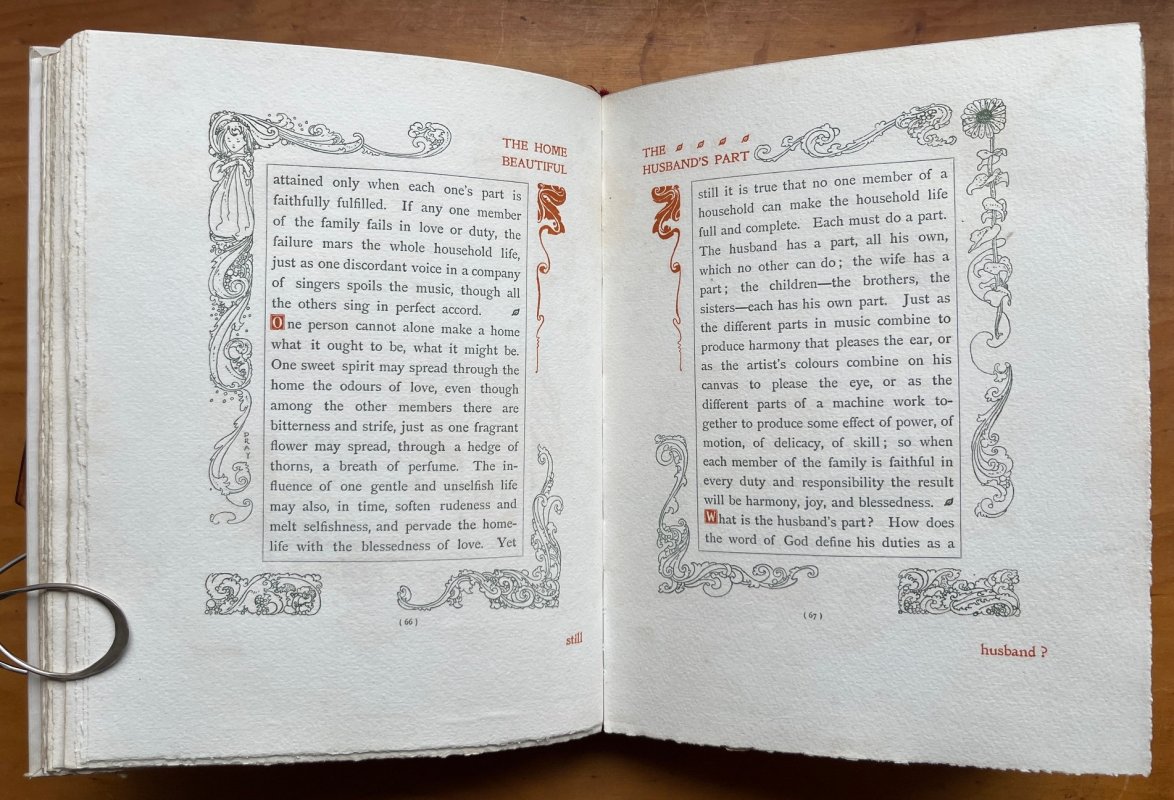 THE HOME
BEAUTIFUL
attained only when each one's part is
faithfully fulfilled. If any one member
of the family fails in love or duty, the
failure mars the whole household life,
just as one discordant voice in a company
of singers spoils the music, though all
the others sing in perfect accord.
One person cannot alone make a home
what it ought to be, what it might be.
One sweet spirit may spread through the
home the odours of love, even though
among the other members there are
bitterness and strife, just as one fragrant
flower may spread, through a hedge of
thorns, a breath of perfume. The in-
fluence of one gentle and unselfish life
may also, in time, soften rudeness and
melt selfishness, and pervade the home-
life with the blessedness of love. Yet
DRAT
(66)
still
THE
HUSBAND'S PART
still it is true that no one member of a
household can make the household life
full and complete. Each must do a part.
The husband has a part, all his own,
which no other can do; the wife has a
part; the children—the brothers, the
sisters—each has his own part. Just as
the different parts in music combine to
produce harmony that pleases the ear, or
as the artist's colours combine on his
canvas to please the eye, or as the
different parts of a machine work to-
gether to produce some effect of power, of
motion, of delicacy, of skill; so when
each member of the family is faithful in
every duty and responsibility the result
will be harmony, joy, and blessedness.
What is the husband's part? How does
the word of God define his duties as a
(67)
husband?